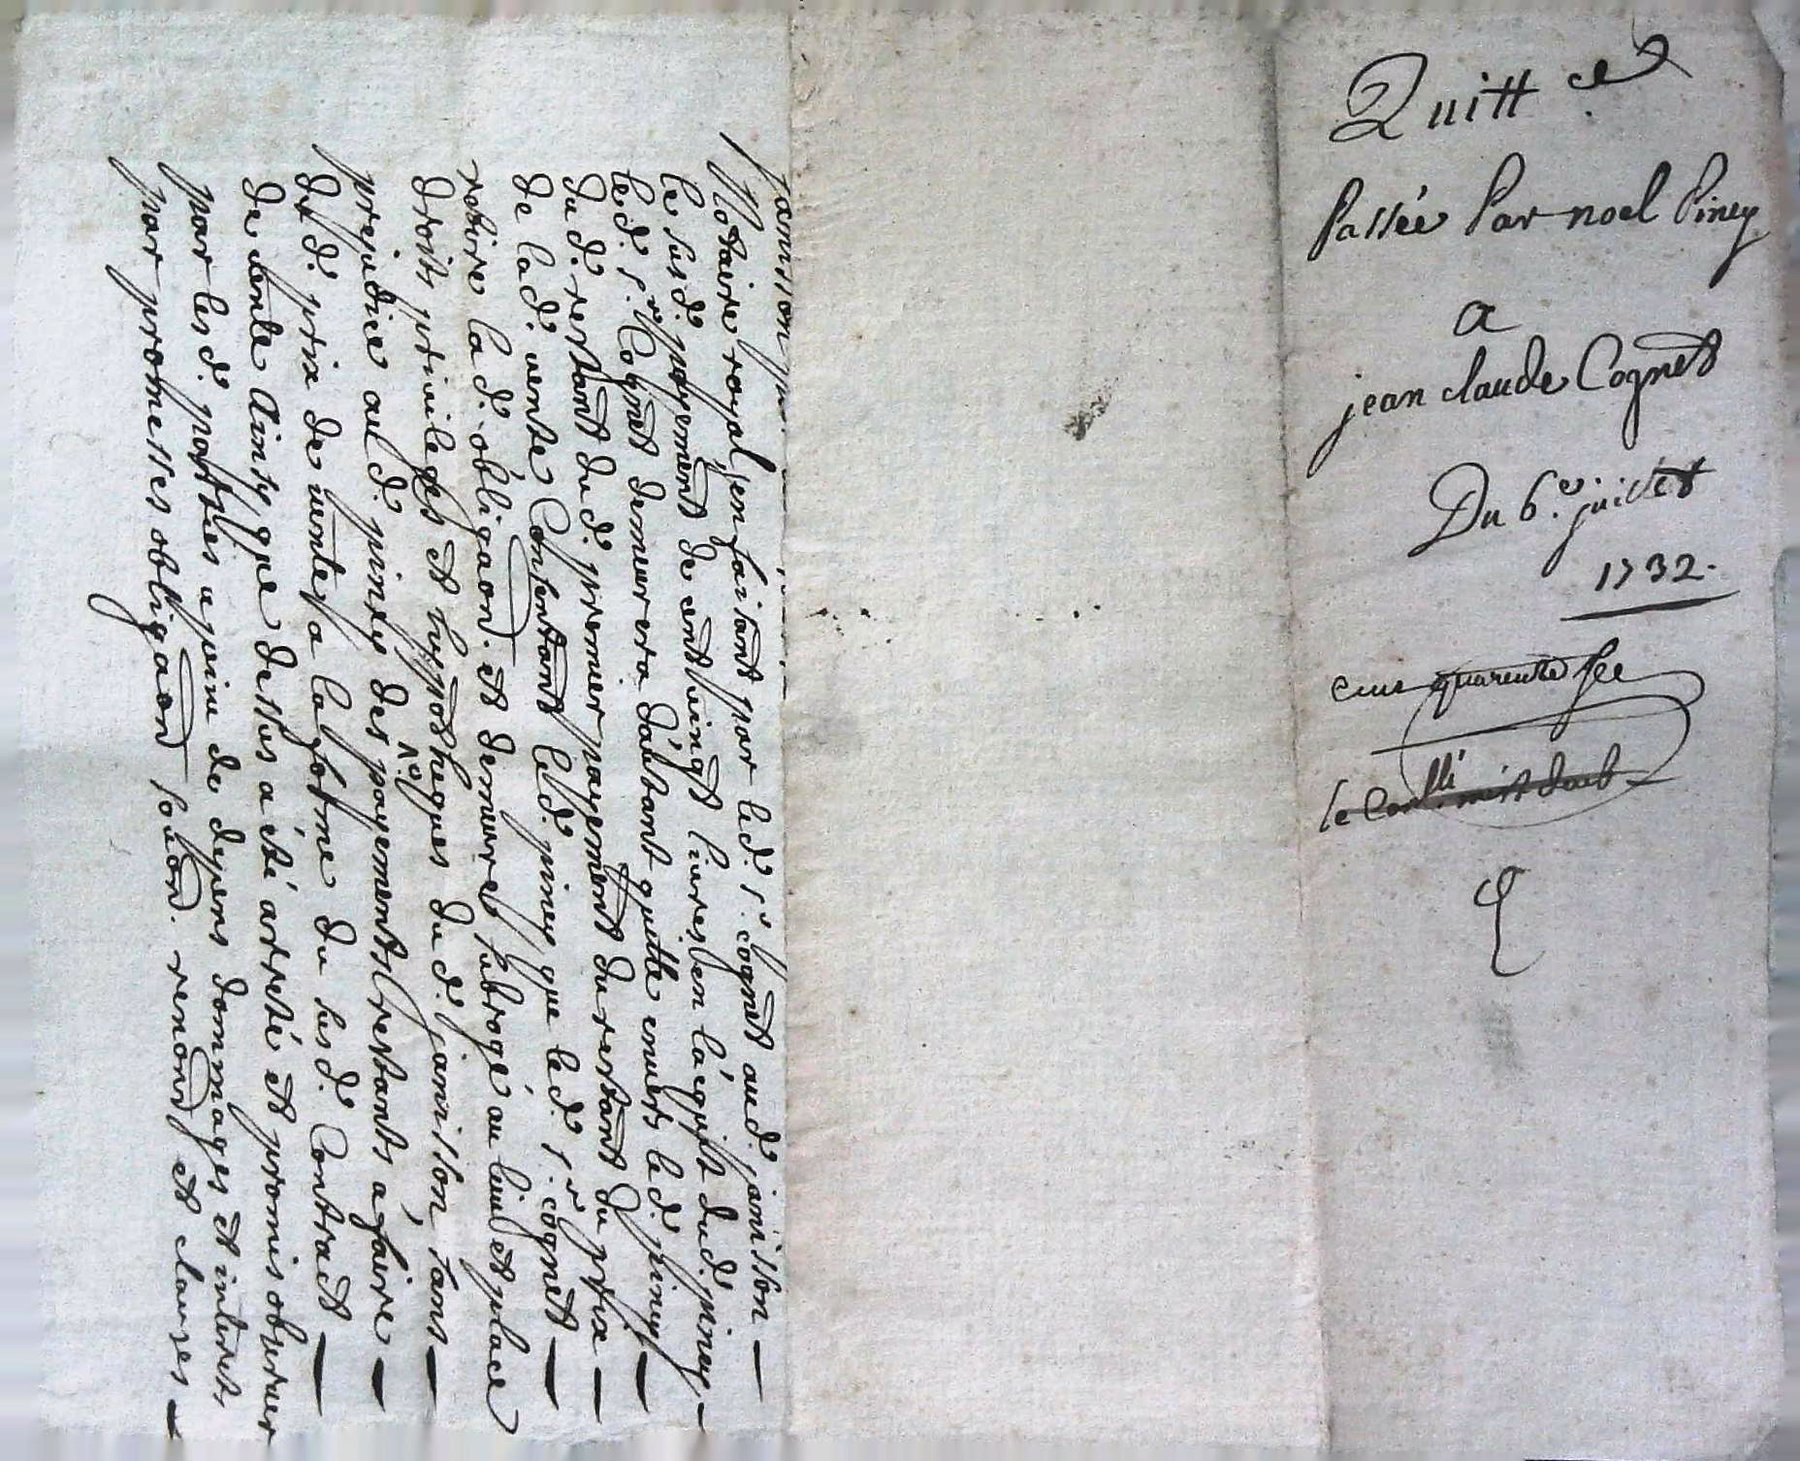 Quitt.ce
Passée Par noel Piney
a
jean claude Cognet
Du 6.e juillet
1732.
cent quarente
janisson
Notaire royal, en faisant par led. sr. cognet aud. janisson
le susd. payement de cent vingt livres en l'acquit dud. piney
led. sr. Cognet demeurera d'autant quitte envers led. piney
du d. restant du d. premier payement du restant du prix
de lad. vente Consentant led. piney que led. sr. cognet
retire lad. obligaon. et demeure subrogé au lieu et place
droits privileges et hypotheques du d. janisson, sans
prejudice aud. piney des payements restants a faire
dud. prix de vente a la forme du susd. Contract
de vente Ainsy que dessus a été arreté et promis observer
par lesd. parties a peine de depens dommages et interets
par promesses obligaon soûon. renonn et clauses